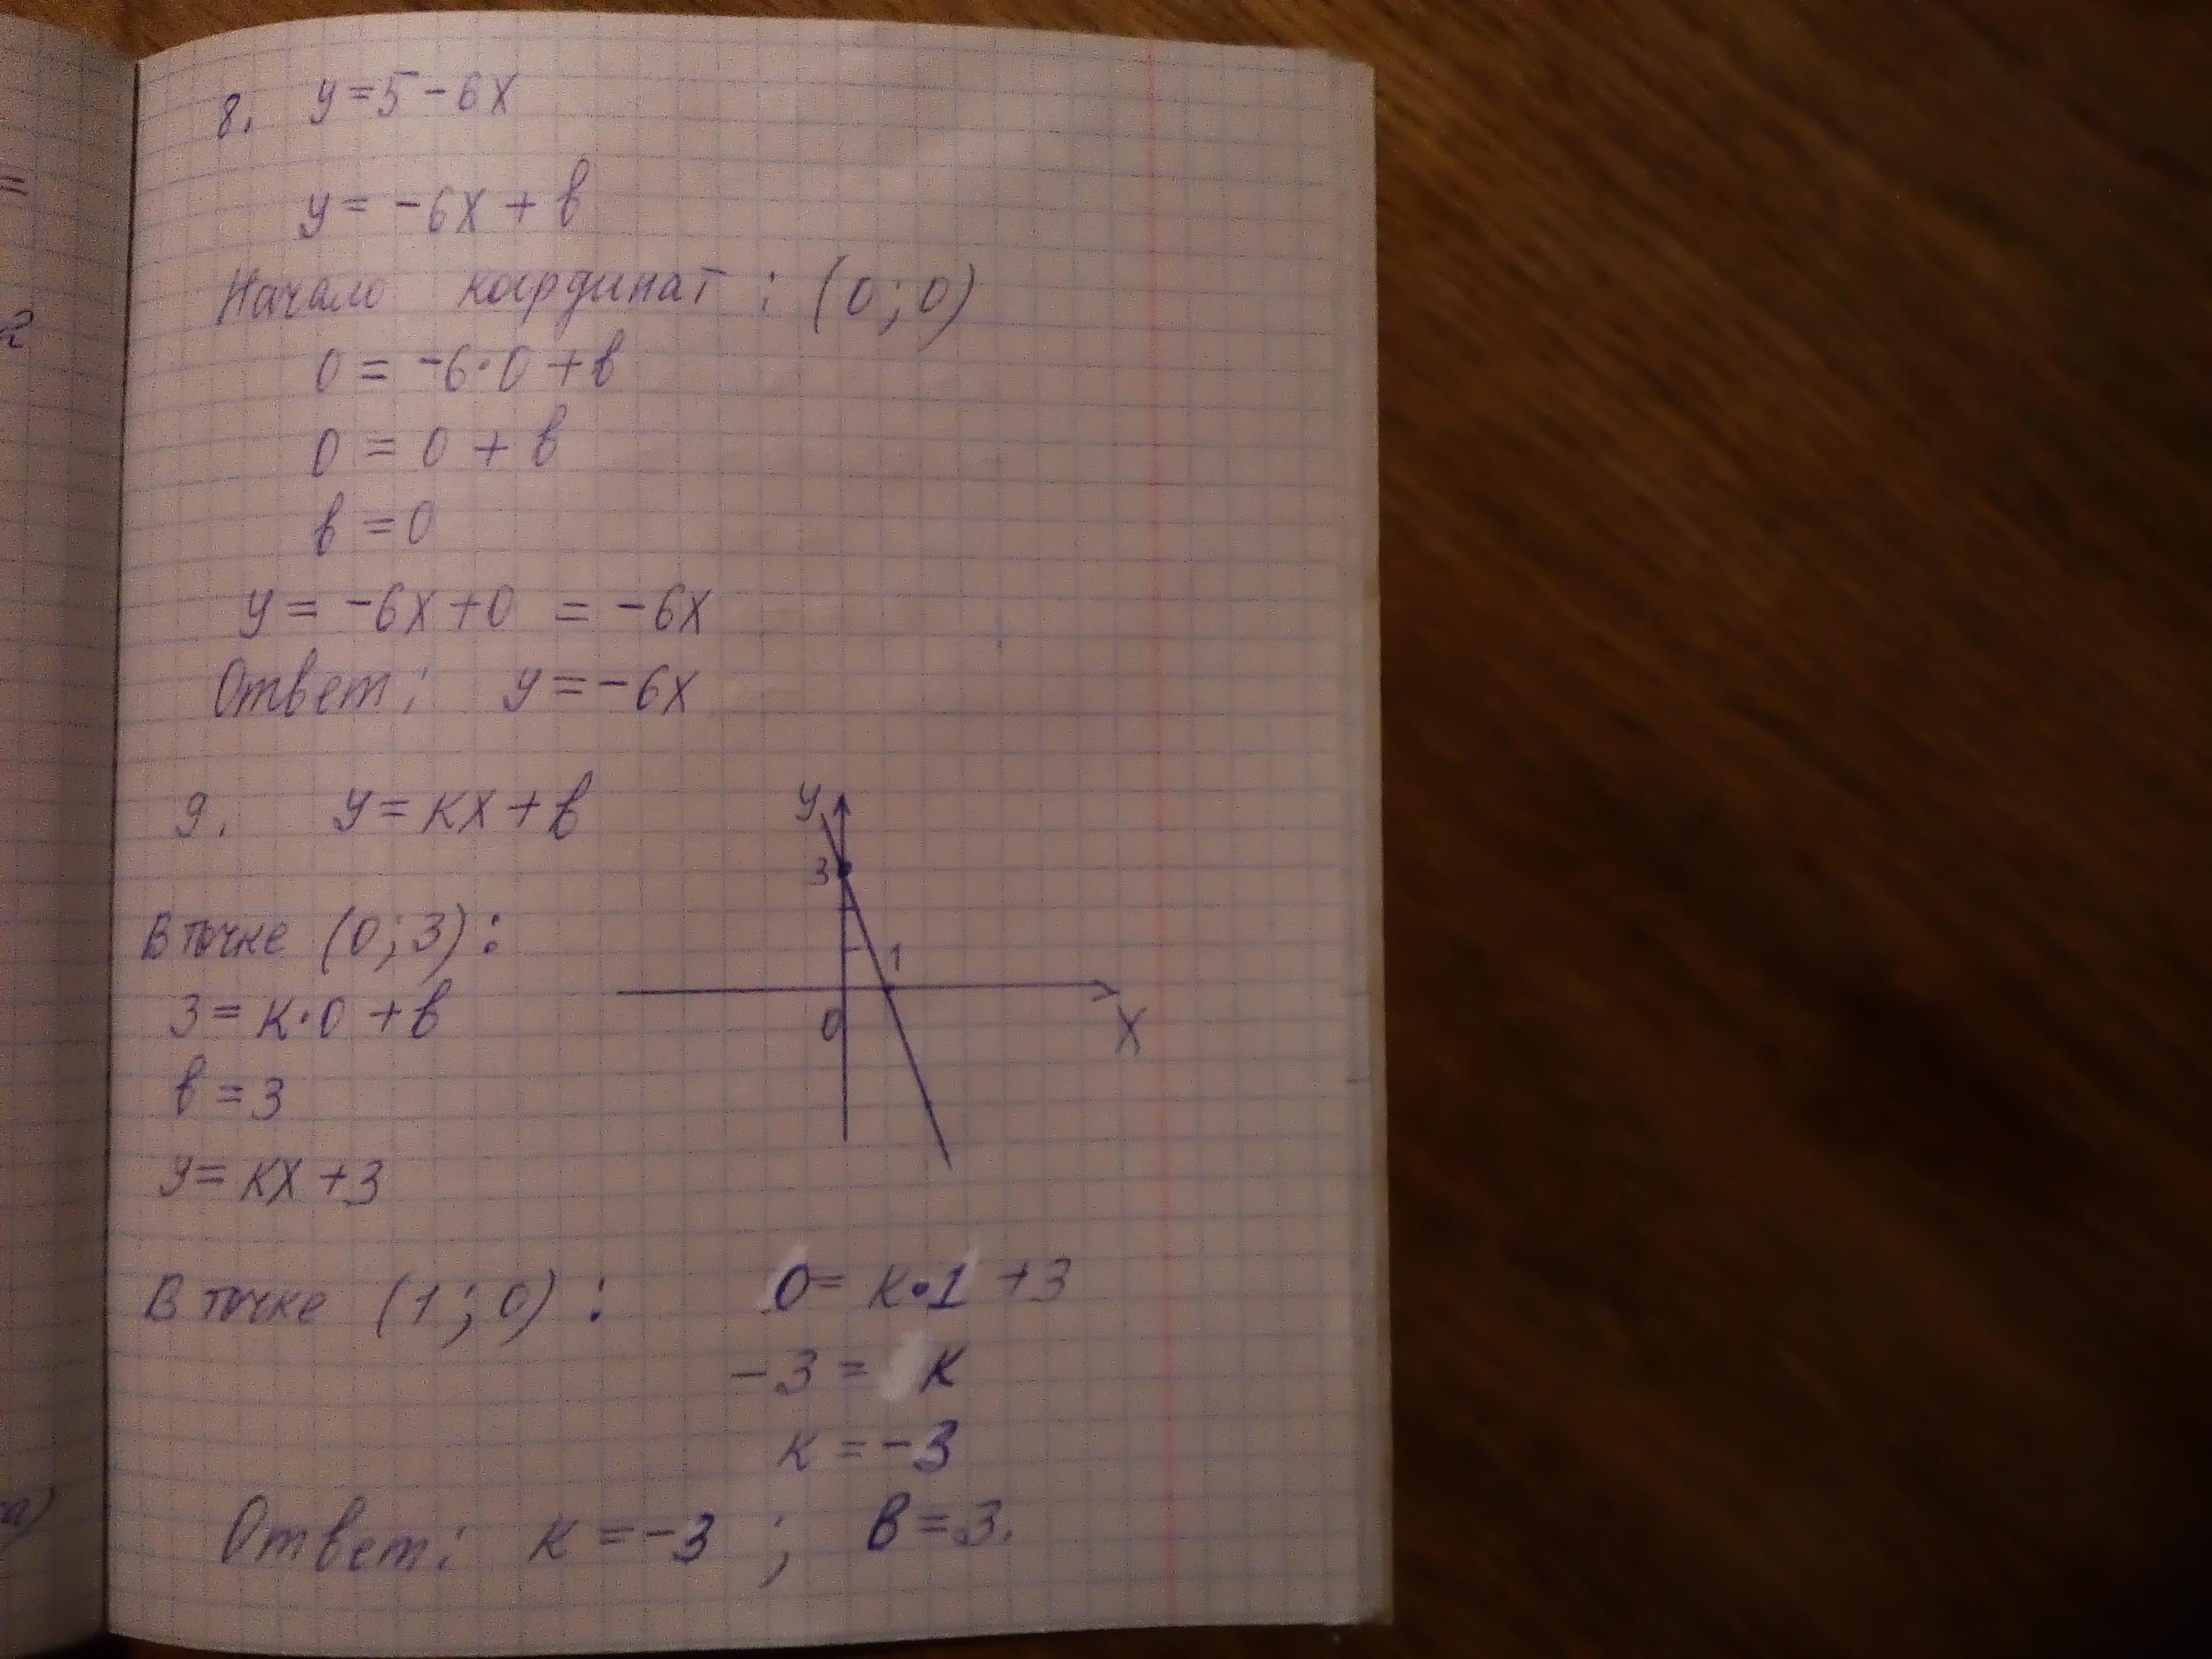 8. y = 5 - 6x
y = -6x + b
Начало координат : (0; 0)
0 = -6·0 + b
0 = 0 + b
b = 0
y = -6x + 0 = -6x
Ответ: y = -6x
9. y = кx + b
y
3
1
0
X
В точке (0; 3):
3 = к·0 + b
b = 3
y = кx + 3
В точке (1; 0) : 0 = к·1 + 3
-3 = к
к = -3
Ответ: к = -3 ; в = 3.